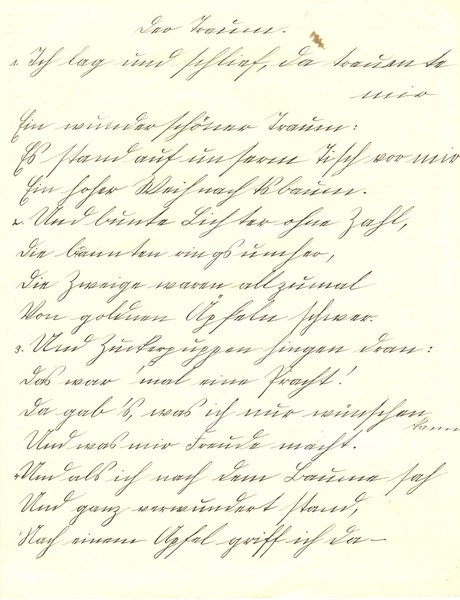 Der Traum.
1. Ich lag und schlief, da träumte
mir
Ein wunderschöner Traum:
Es stand auf unserm Tisch vor mir
Ein hoher Weihnachtsbaum.
2. Und bunte Lichter ohne Zahl,
Die brannten ringsumher,
Die Zweige waren allzumal
Von goldnen Äpfeln schwer.
3. Und Zuckerpuppen hingen dran:
Das war 'mal eine Pracht!
Da gab's, was ich nur wünschen
kann
Und was mir Freude macht.
4. Und als ich nach dem Baume sah
Und ganz verwundert stand,
Nach einem Apfel griff ich da—